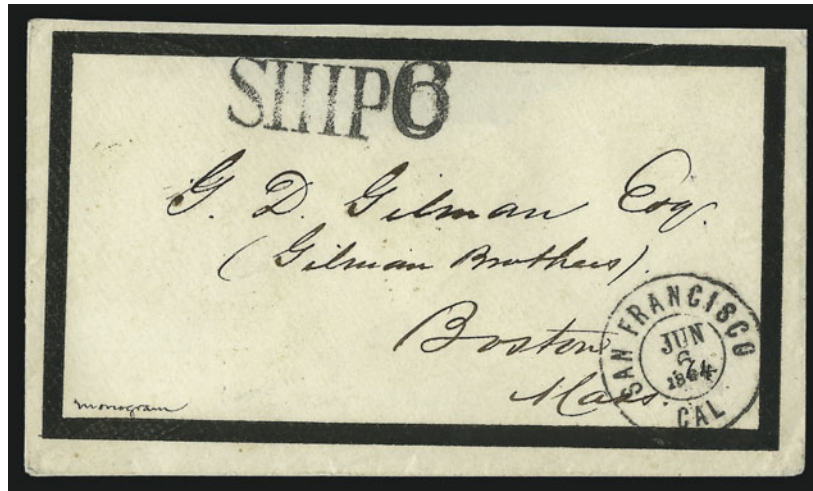 SHIP 6
G. D. Gilman Esq.
(Gilman Brothers).
Boston
Mass.
SAN FRANCISCO
JUN
6
CAL
monogram